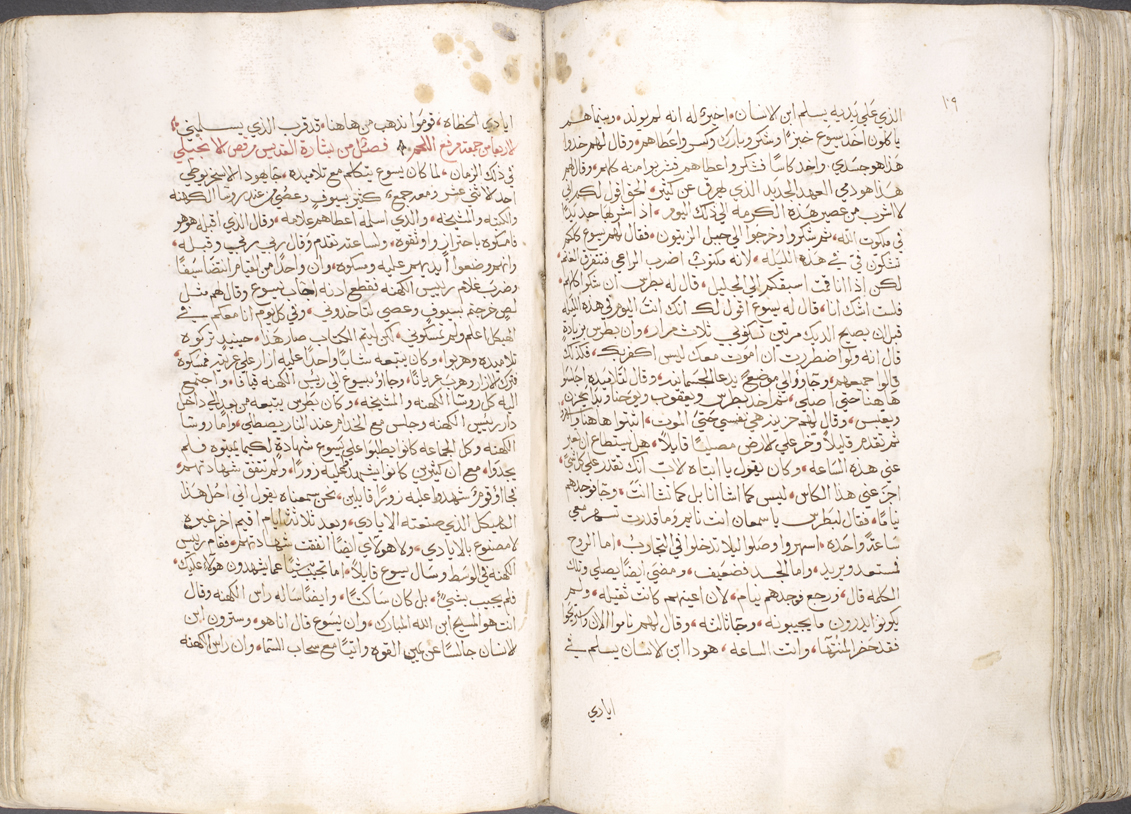 ١٠٩
الذي على يديه يسلم ابن لانسان، اخير له انه لم يولد، وبينما هم
ياكلون اخد يسوع خبزًا وشكر وبارك وكسر واعطاهم، وقال لهم خدوا
هذا هو جسدي، واخد كاسًا فشكر واعطاهم فشربوا منه كلهم، وقال لهم
هذا هو دمي العهد الجديد الذي يهرق عن كثير، الحق اقول لكم اني
لا اشرب من عصير هذه الكرمه الى ذلك اليوم، اذ اشربها جديدًا
في ملكوت الله، ثم شكروا وخرجوا الى جبل الزيتون، فقال لهم يسوع كلكم
تشكون فيّ في هذه الليله، لانه مكتوب اضرب الراعي فتتفرق الغنم
لكن اذا انا قمت اسبقكم الى الجليل، قال له بطرس ان شكوا كلهم
فلست اشك انا، قال له يسوع اقول لك انك انت اليوم في هذه الليله
قبل ان يصيح الديك مرتين تنكرني ثلاث مرار، وان بطرس بزيادة
قال انه ولو اضطررت ان اموت معك ليس اكفر بك، فكذلك
قالوا جميعهم، وجاووا الى موضع يدعا الجسمانيه، وقال لتلاميده اجلسوا
هاهنا حتى اصلي، ثم اخد بطرس ويعقوب ويوحنا وبدا يحزن
ويعبس، وقال لهم حزينه هي نفسي حتى الموت، اتبتوا هاهنا
ثم تقدم قليلاً وخر على لارض مصليًا قايلاً، هل يستطاع ان تعبر
عني هذه الساعه، وكان يقول يا ابتاه لاب انك تقدر على كل شي
اجز عني هذا الكاس، ليس كما اشا انا بل كما تشا انت، وجا فوجدهم
نيامًا، فقال لبطرس يا سمعان انت نايم، وما قدرت تسهر معي
ساعة واحده، اسهروا وصلوا ليلا تدخلوا في التجارب، اما الروح
فمستعد ويريد، واما الجسد فضعيف، ومضى ايضًا يصلي وتلك
الكلمه قال، ورجع فوجدهم نيام، لان اعينهم كانت تقيله، ولم
يكونوا يدرون ما يجيبونه، وجا ثالثه، وقال لهم ناموا الان واستريحوا
فقد حضر المنتها، واتت الساعه، هودا ابن لانسان يسلم في
ايادي
ايادي الخطاه، قوموا نذهب من هاهنا، قد قرب الذي يسلمني،
لاربعا من جمعة مرفع اللحم، فصل من بشارة القديس مرقص لانجيلي
في ذلك الزمان، لما كان يسوع يتكلم مع تلاميده، جا يهودا الاسخريوطي
احد لاثني عشر، ومعه جمع كثير بسيوف وعصي من عند روسا الكهنه
والكتبه والمشيخه، والذي اسلمه اعطاهم علامه، وقال الذي اقبله هو هو
فامسكوه باحتراز واوثقوه، ولساعته تقدم وقال ربي ربي وقبله،
وانهم وضعوا ايديهم عليه ومسكوه، وان واحدًا من القيام انتضا سيفًا
وضرب غلام رييس الكهنه فقطع ادنه اجاب يسوع وقال لهم مثل
لص خرجتم بسيوف وعصي لتاخدوني، وفي كل يوم انا معكم في
الهيكل اعلم ولم تمسكوني، لكن ليتم الكتاب صار هذا، حينيد تركوه
تلاميده وهربوا، وكان يتبعه شابًا واحدًا عليه ازار على عريته فمسكوه
فترك الازار وهرب عريانًا، وجاوا بيسوع الى رييس الكهنه قيافا، واجتمع
اليه كل روسا الكهنه والمشيخه، وكان بطرس يتبعه من بعد الى داخل
دار رييس الكهنه وجلس مع الخدام عند النار يصطلي، واما روسا
الكهنه وكل الجماعه كانوا يطلبوا على يسوع شهادة لكيما يميتوه فلم
يجدوا، مع ان كثيرين كانوا يشهدوا عليه زورًا، ولم تتفق شهاداتهم،
فجااو قوم شهدوا عليه زورًا قايلين، نحن سمعناه يقول اني احل هذا
الهيكل الذي صنعته الايادي، وبعد ثلاثة ايام اقيم اخر غيره
لا مصنوع بالايادي، ولا هولاي ايضًا اتفقت شهادتهم، فقام رييس
الكهنه في الوسط وسال يسوع قايلاً، اما تجيب شيًا عما يشهدون هولاء عليك،
فلم يجيب بشيء، بل كان ساكتًا، وايضًا ساله راس الكهنه وقال
انت هو المسيح ابن الله المبارك، وان يسوع قال انا هو، وسترون ابن
لانسان جالسًا عن يمين القوه واتيًا مع سحاب السما، وان راس الكهنه